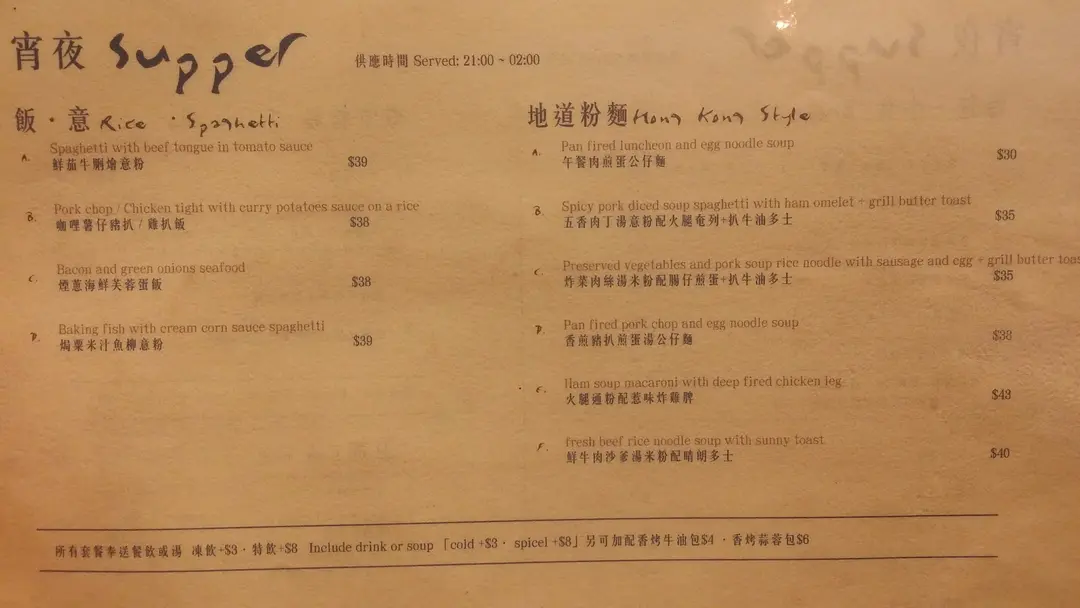 宵夜 Supper
供應時間 Served: 21:00 ~ 02:00
飯·意 Rice · Spaghetti
A. Spaghetti with beef tongue in tomato sauce
鮮茄牛脷燴意粉 $39
B. Pork chop / Chicken tight with curry potatoes sauce on a rice
咖喱薯仔豬扒 / 雞扒飯 $38
C. Bacon and green onions seafood
煙蔥海鮮芙蓉蛋飯 $38
D. Baking fish with cream corn sauce spaghetti
焗粟米汁魚柳意粉 $39
地道粉麵 Hong Kong Style
A. Pan fired luncheon and egg noodle soup
午餐肉煎蛋公仔麵 $30
B. Spicy pork diced soup spaghetti with ham omelet + grill butter toast
五香肉丁湯意粉配火腿奄列+扒牛油多士 $35
C. Preserved vegetables and pork soup rice noodle with sausage and egg + grill butter toas
炸菜肉絲湯米粉配腸仔煎蛋+扒牛油多士 $35
D. Pan fired pork chop and egg noodle soup
香煎豬扒煎蛋湯公仔麵 $38
E. Ham soup macaroni with deep fired chicken leg
火腿通粉配惹味炸雞脾 $43
F. fresh beef rice noodle soup with sunny toast
鮮牛肉沙爹湯米粉配晴朗多士 $40
所有套餐奉送餐飲或湯 凍飲+$3 · 特飲+$8 Include drink or soup 「cold +$3 · spicel +$8」另可加配香烤牛油包$4 · 香烤蒜蓉包$6